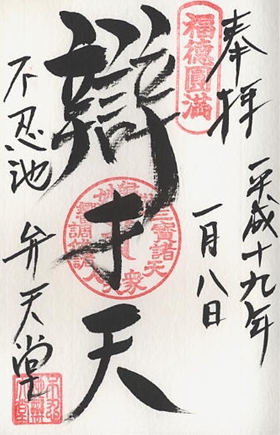 奉拝
平成十九年
一月八日
福徳圓満
辯才天
不忍池
弁天堂